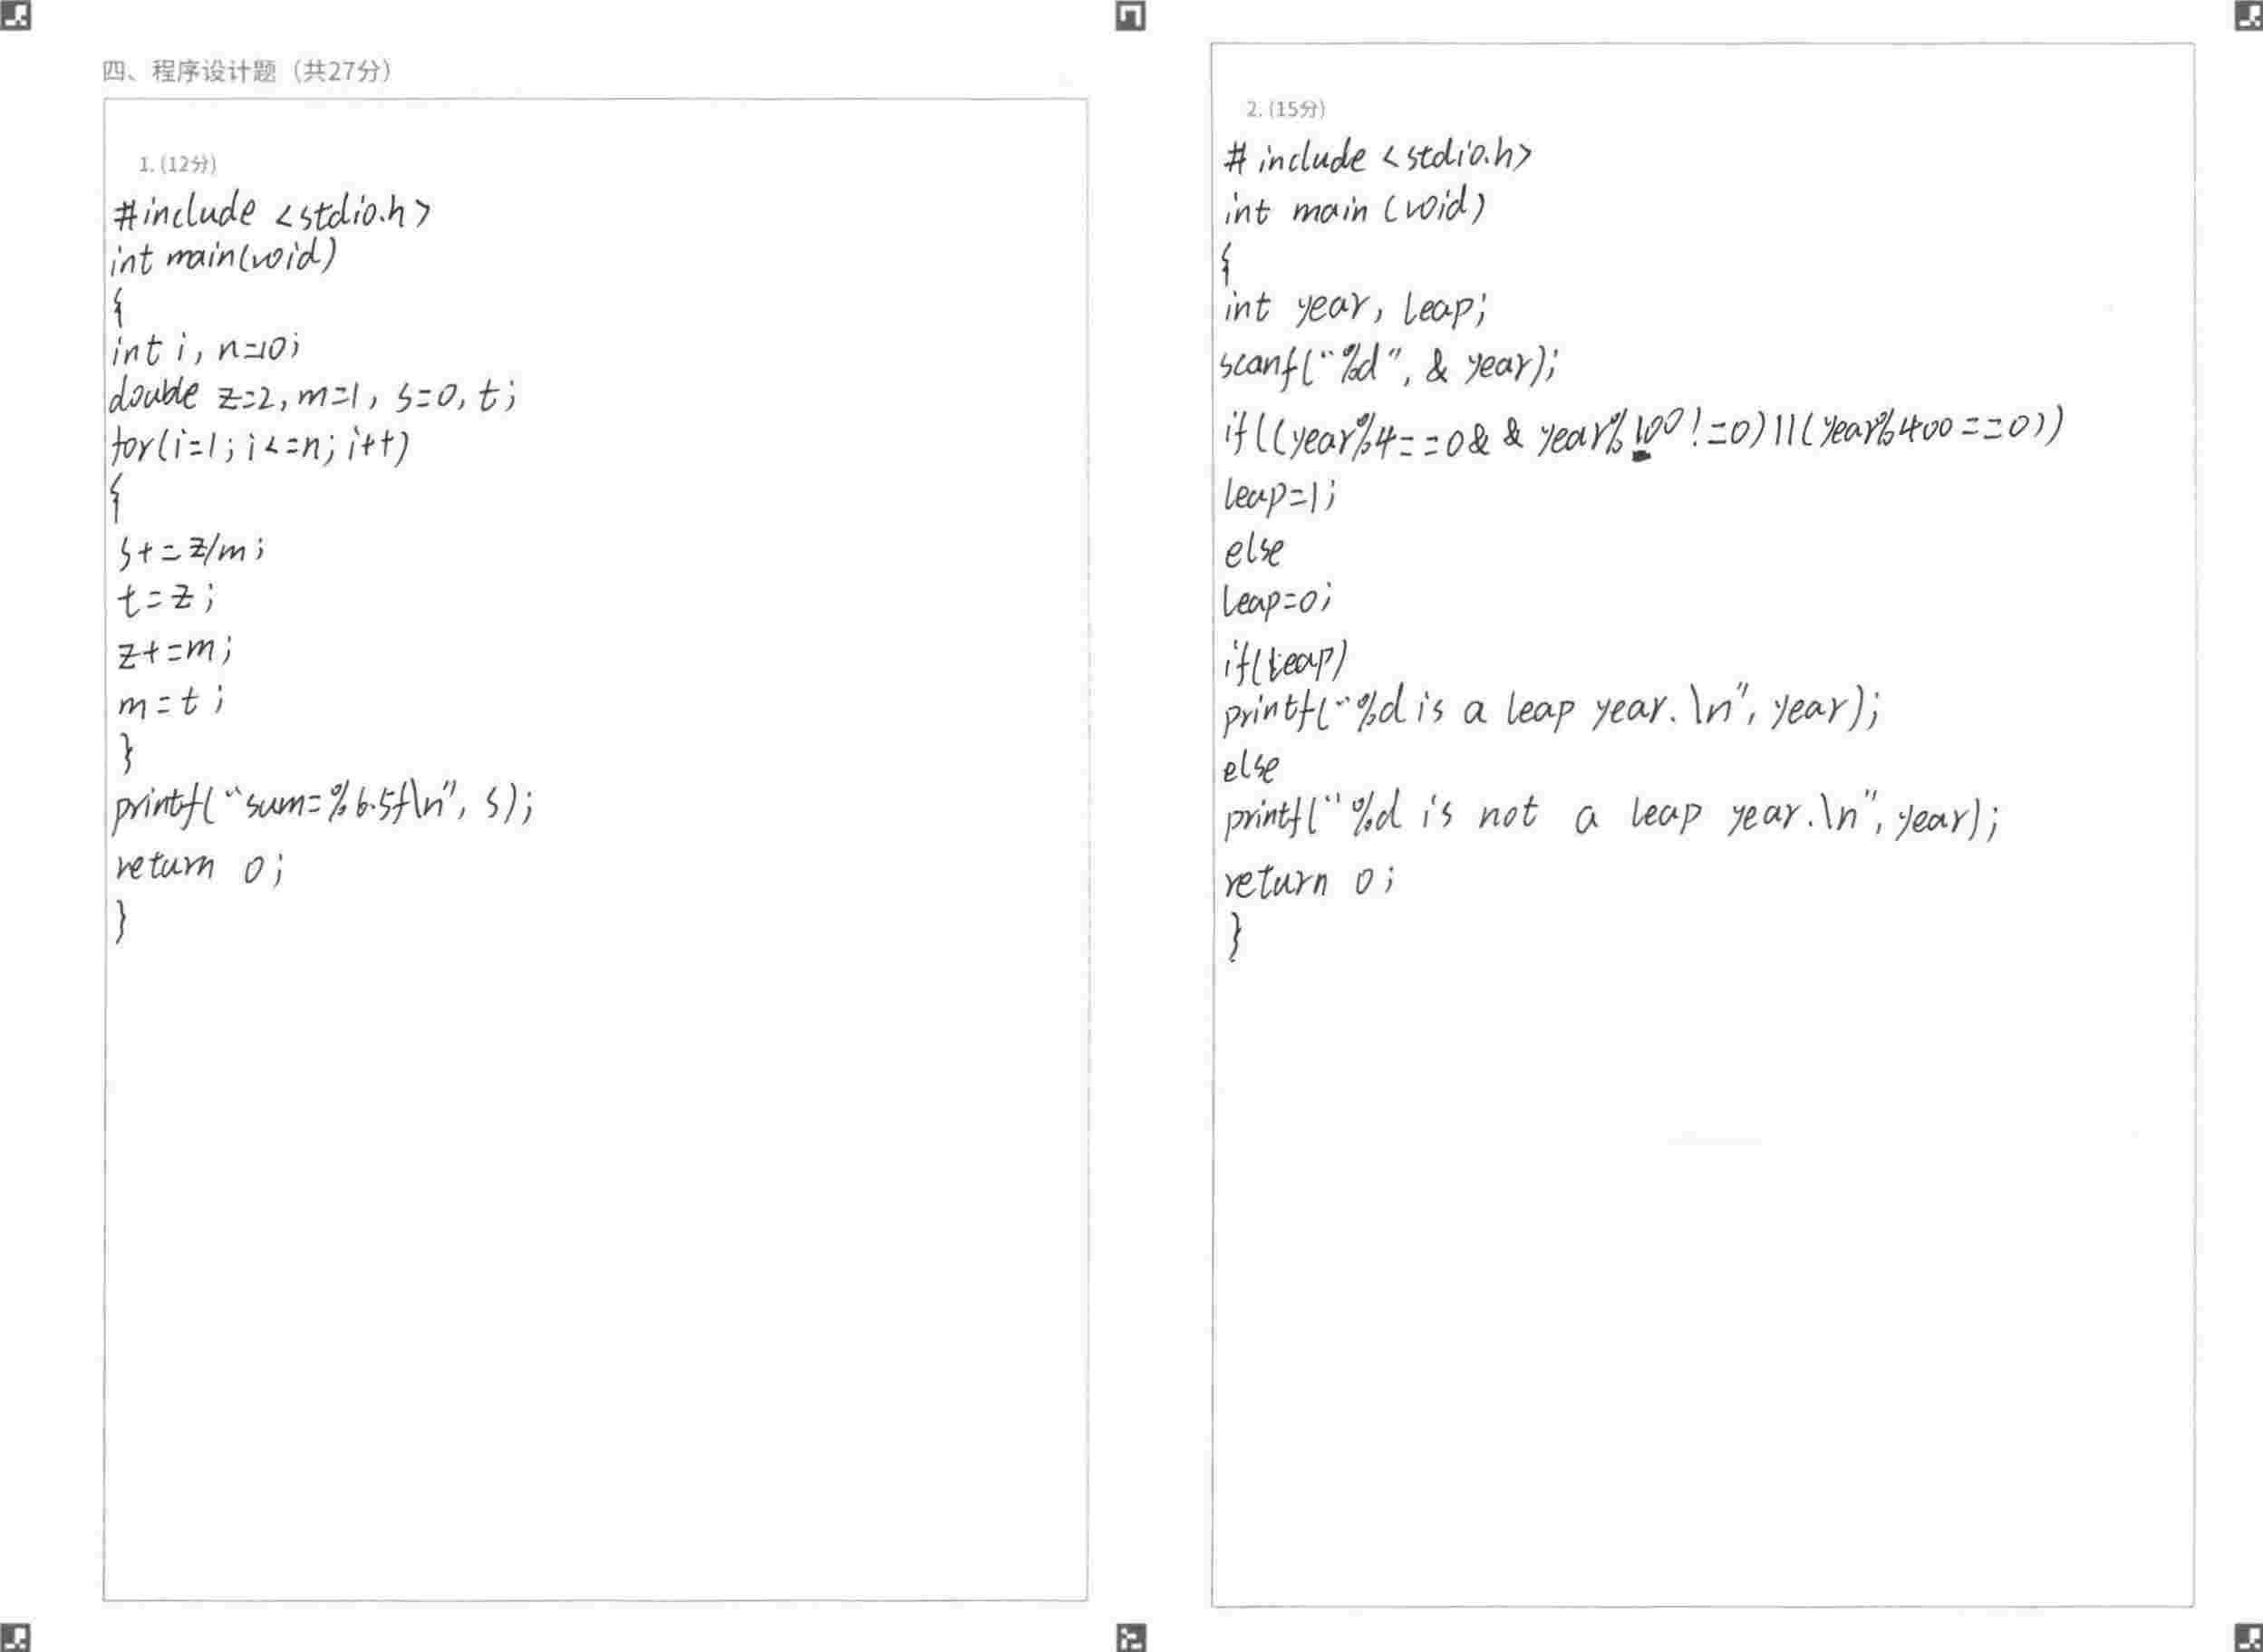 四、程序设计题（共27分）
1. (12分)
#include <stdio.h>
int main(void)
{
int i, n=10;
double z=2, m=1, s=0, t;
for(i=1; i<=n; i++)
{
s+=z/m;
t=z;
z+=m;
m=t;
}
printf("sum=%6.5f\n", s);
return 0;
}
2. (15分)
# include <stdio.h>
int main (void)
{
int year, leap;
scanf("%d", & year);
if((year%4==0&& year%100!=0)||(year%400==0))
leap=1;
else
leap=0;
if(leap)
printf("%d is a leap year.\n", year);
else
printf("%d is not a leap year.\n", year);
return 0;
}